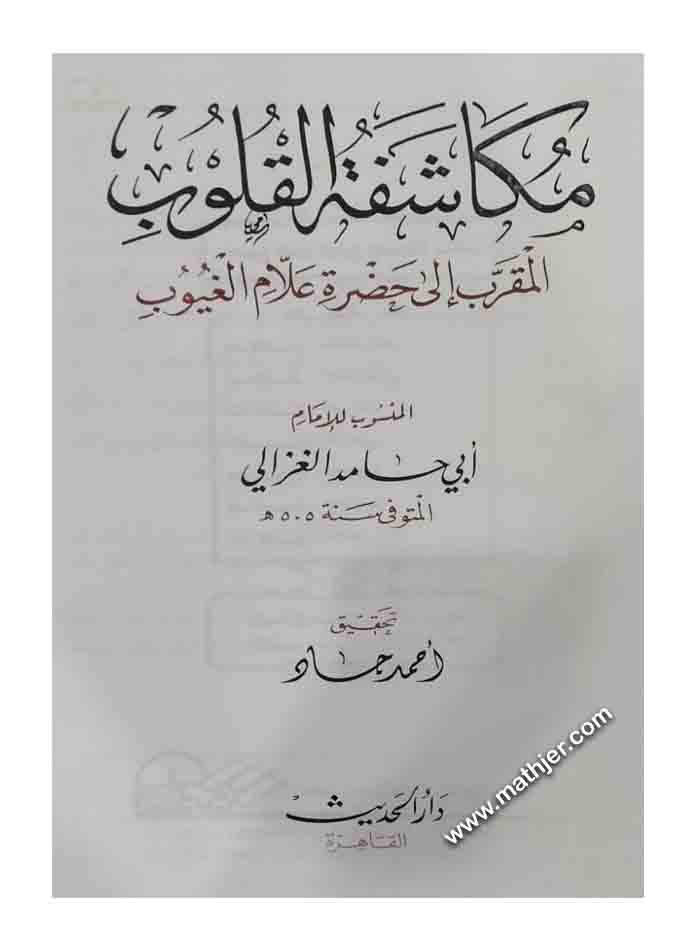 مُكَاشَفَةُ القُلُوبُ
المقَرَّب إلى حَضْرة عَلّامِ الغُيُوبِ
المنسوب للإمَامِ
أبي حامد الغزالي
المتوفى سَنة ٥٠٥ هـ
تحقيق
أحمد جاد
دَارُ الحَديث
القاهِرة
www.mathjer.com